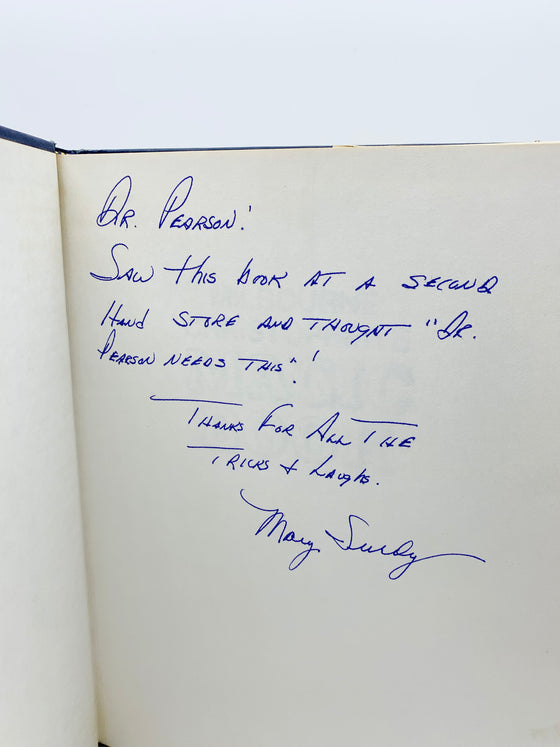 Dr. Pearson!
Saw this book at a second
hand store and thought "Dr.
Pearson needs this"!
Thanks for all the
tricks + laughs.
Mary